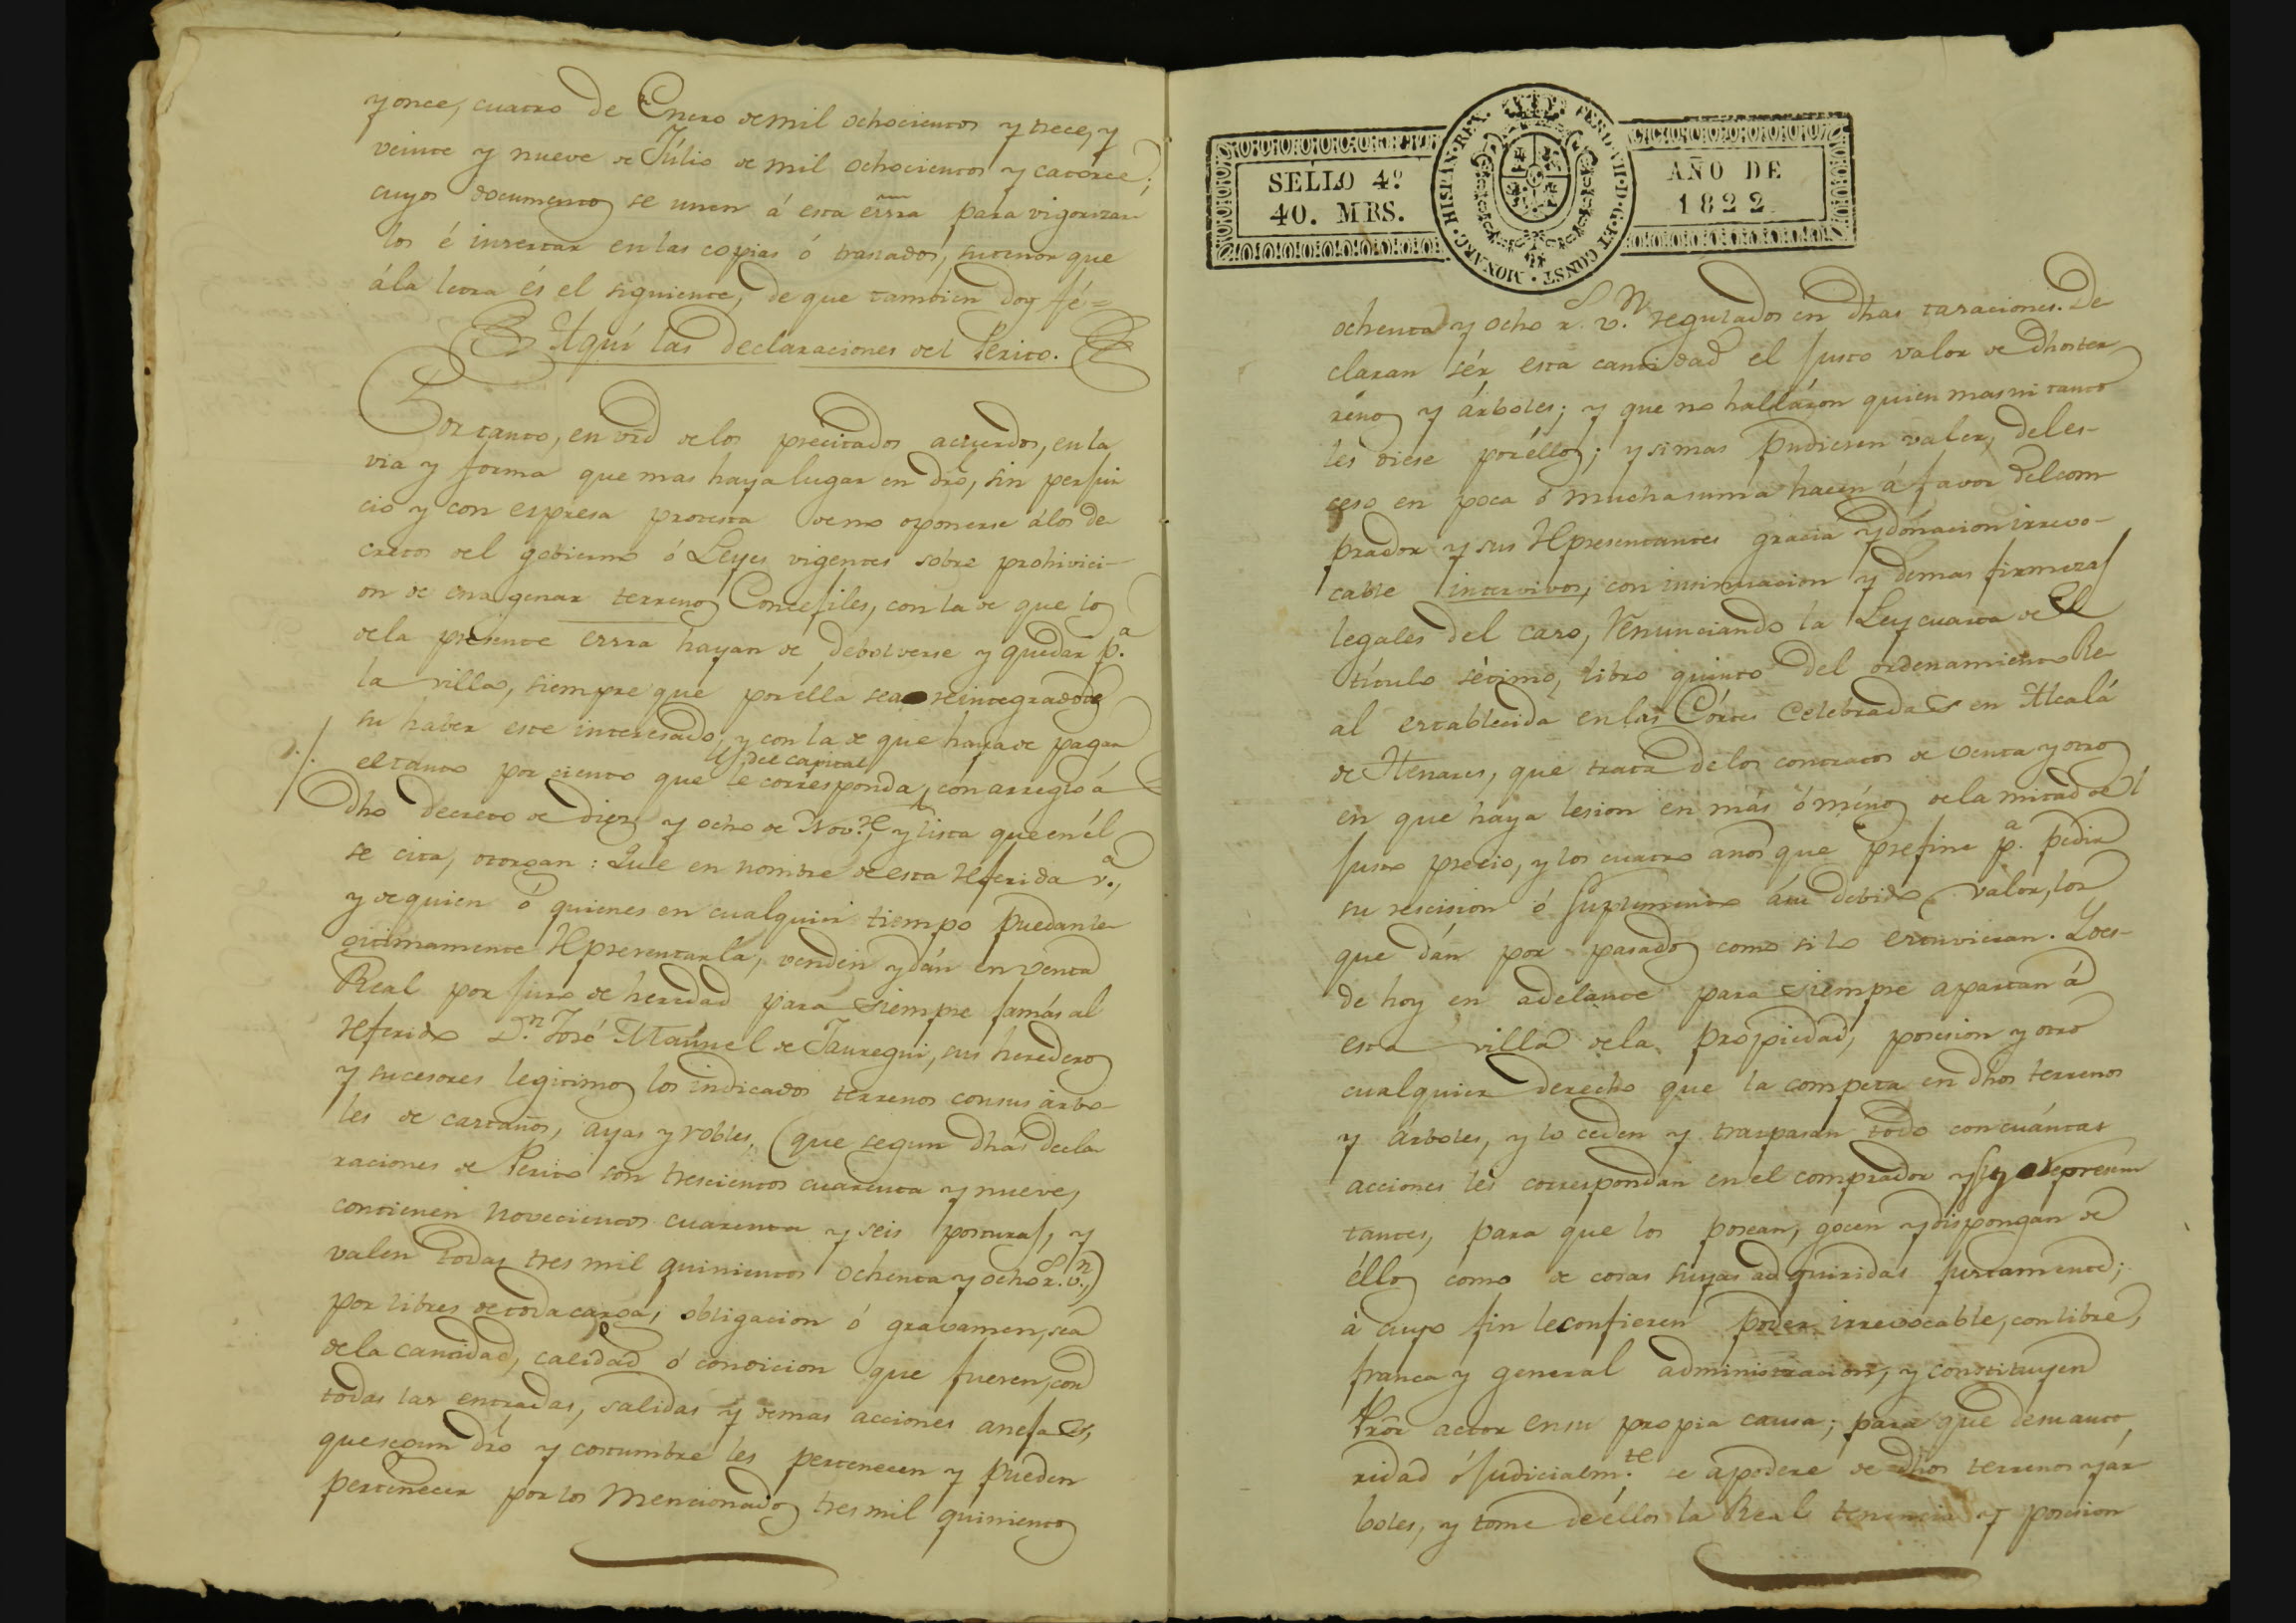 y once, cuatro de Enero de mil ochocientos y trece, y
veinte y nueve de Júlio de mil ochocientos y catorce;
cuyos documentos se unen á esta essra para vigorizar
los é insertar en las copias ó traslados, su tenor que
á la letra és el siguiente, de que tambien doy fé=
Aquí las declaraciones del Perito.
Por tanto, en vrd de los precitados acuerdos, en la
via y forma que mas haya lugar en dro, sin perjui
cio y con espresa protesta de no oponerse á los de
cretos del gobierno ó Leyes vigentes sobre prohivici-
on de enagenar terrenos Concejiles, con la de que los
de la presente essra hayan de debolverse y quedar p.a
la villa, siempre que por élla sea reintegrado de
su haber este interesado, y con la de que haya de pagar
del capital
el tanto por ciento que le corresponda, con arreglo á
dho decreto de diez y ocho de Nov.e, y lista que en él
se cita, otorgan: Que en nombre de esta referida v.a,
y de quien ó quienes en cualquier tiempo puedan le
gitimamente representarla, venden y dán en venta
Real por juro de heredad para siempre jamás al
referido D.n José Manuel de Jauregui, sus herederos
y sucesores legitimos los indicados terrenos con sus árbo
les de castaños, ayas y robles, (que segun dhás decla
raciones de Perito son trescientos cuarenta y nueve,
contienen novecientos cuarenta y seis posturas, y
valen todas tres mil quinientos ochenta y ocho r.s v.n)
por libres de toda carga, obligacion ó gravamen, sea
de la cantidad, calidad ó condicion que fueren, con
todas las entradas, salidas y demas acciones anejas,
que segun dro y costumbre les pertenecen y pueden
pertenecer por los mencionados tres mil quinientos
SELLO 4º
40. MRS.
HISPAN·REX. FERD·VII·D·G·ET CONST·MONARC·
AÑO DE
1822
ochenta y ocho r.s v.n regulados en dhas tasaciones. De
claran sér esta cantidad el justo valor de dhos ter
renos y árboles; y que no halláron quien mas ni tanto
les diese por éllos; y si mas pudiesen valer, del es-
ceso en poca ó mucha suma hacen á favor del com
prador y sus representantes gracia y donacion irrevo-
cable intervivos, con insinuacion y demas firmezas
legales del caso, renunciando la Ley cuarta de el
título sétimo, libro quinto del ordenamiento Re
al establecida en las Córtes Celebradas en Alcalá
de Henares, que trata de los contratos de venta y otros
en que haya lesion en más ó ménos de la mitad del
justo precio, y los cuatro años que prefine p.a pedir
su rescision ó suplemento á su debido valor, los
que dán por pasados como si lo estuvieran. Y des-
de hoy en adelante para siempre apartan á
esta villa de la propiedad, posesion y otro
cualquier derecho que la competa en dhos terrenos
y árboles, y lo ceden y traspasan todo con cuántas
acciones les correspondan en el comprador y sus represen
tantes, para que los posean, gocen y dispongan de
éllos como de cosas suyas adquiridas justamente;
á cuyo fin le confieren poder irrevocable, con libre,
franca y general administracion, y constituyen
Pror actor en su propia causa; para que de su auto
ridad ó judicialm.te se apodere de dhos terrenos y ár
boles, y tome de éllos la Real tenencia y posesion